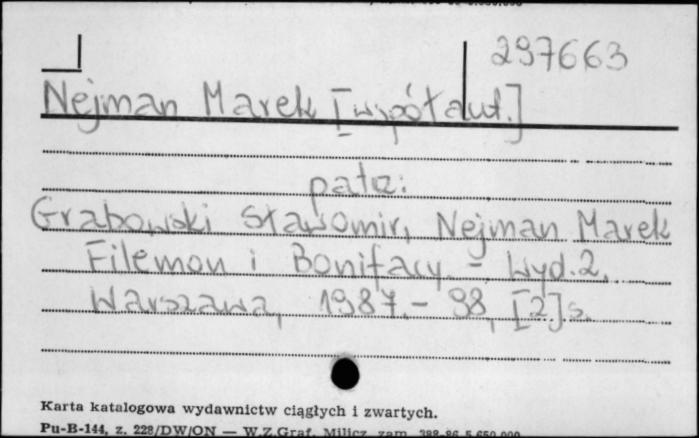 297663
Nejman Marek [współaut.]
patrz:
Grabowski Sławomir, Nejman Marek
Filemon i Bonifacy. - Wyd. 2.
Warszawa, 1987. - 98, [2] s.
Karta katalogowa wydawnictw ciągłych i zwartych.
Pu-B-144, z. 228/DW/ON — W.Z.Graf. Milicz zam. 388-86 5.650.000